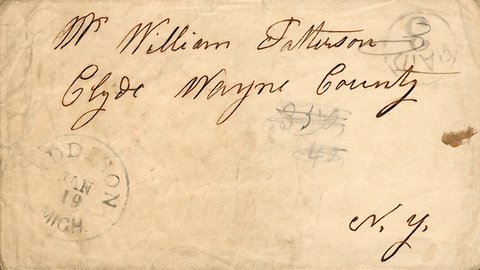 Mr William Patterson
Clyde Wayne County
N. Y.
PAID
3
JAN
19
MICH